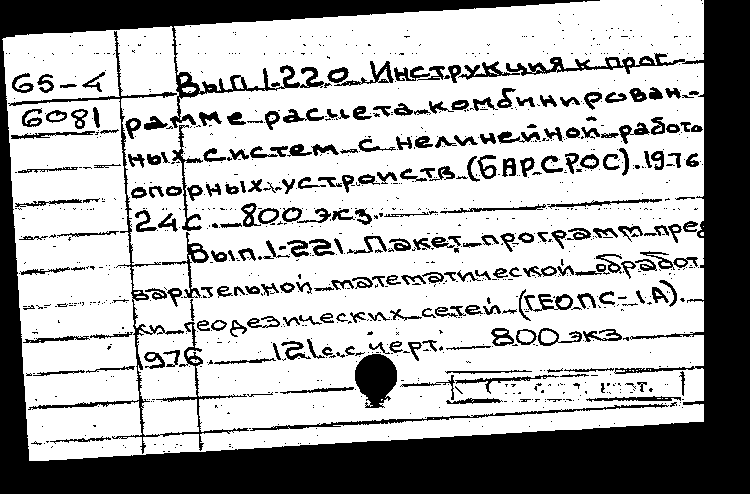 65-4
6081
Вып. 1-220. Инструкция к прог-
рамме расчета комбинирован-
ных систем с нелинейной работо
опорных устройств (БАРСРОС). 1976
24 с. 800 экз.
Вып. 1-221. Пакет программ пред
варительной математической обработ
ки геодезических сетей (ГЕОПС-1А).
1976 121 с. с черт. 800 экз.